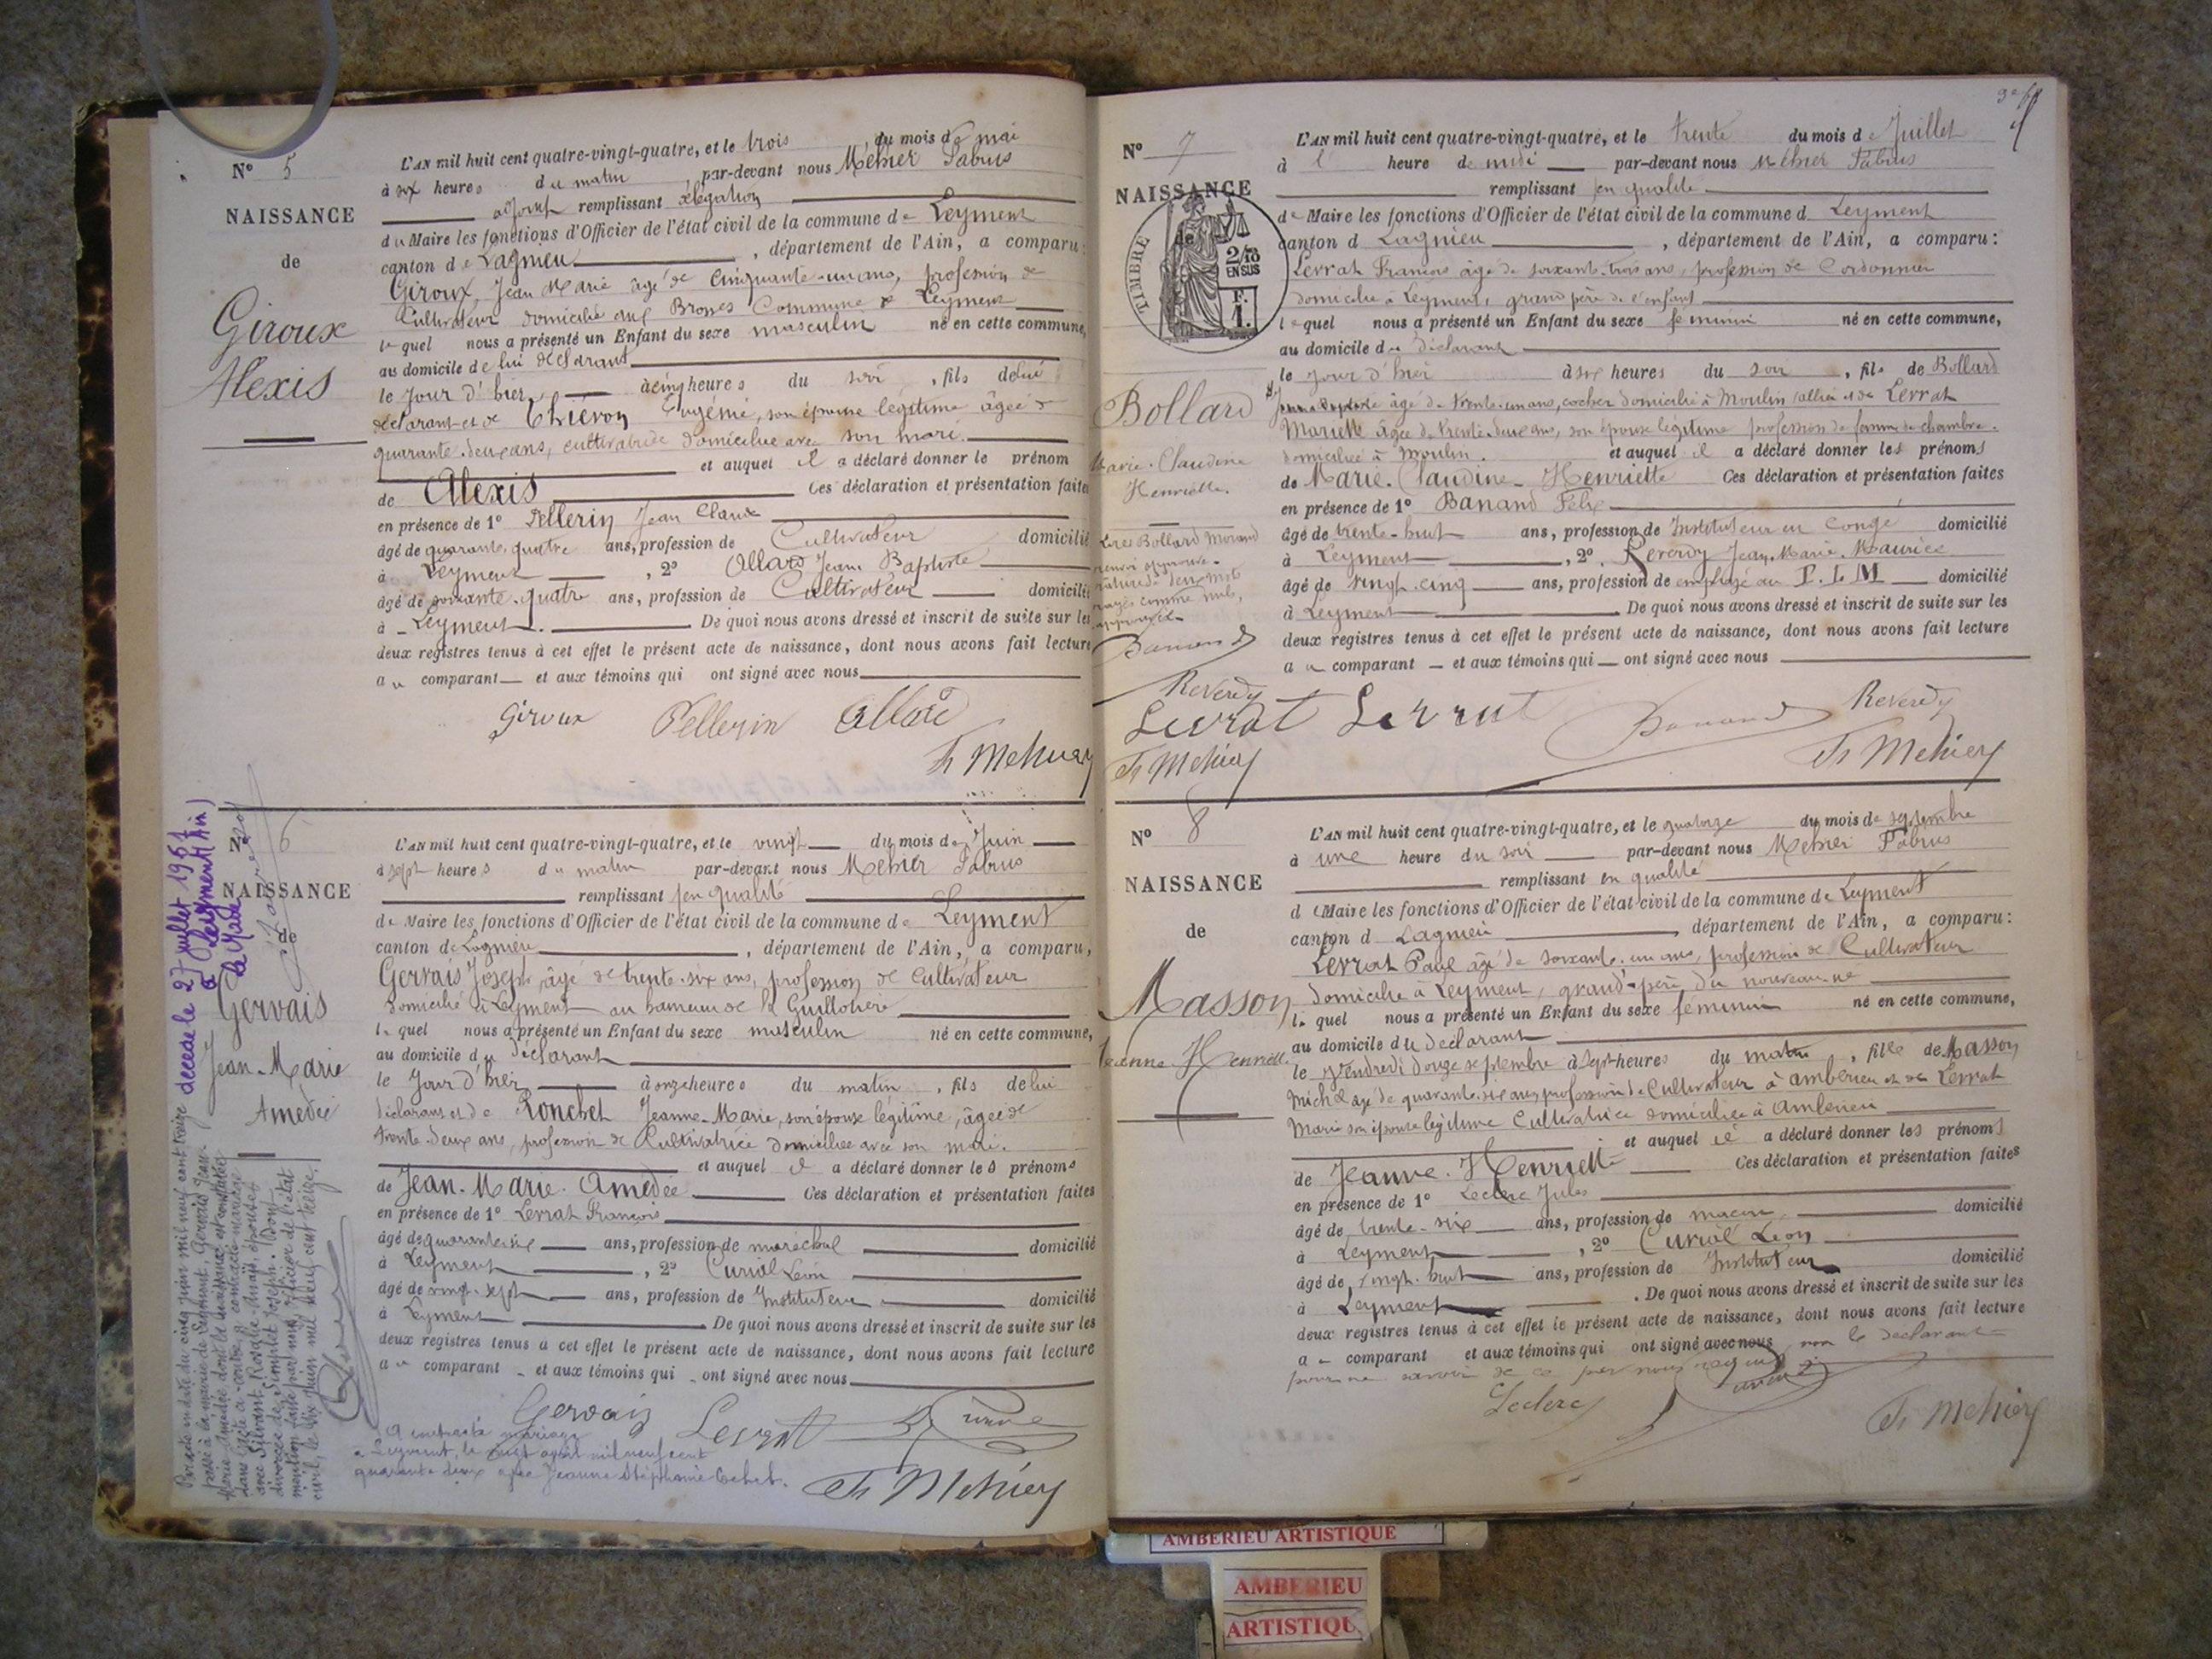 N° 5
NAISSANCE
de
Giroux
Alexis
L'AN mil huit cent quatre-vingt-quatre, et le trois du mois de mai
à six heures du matin, par-devant nous Méhier Fabius
adjoint remplissant délégation
du Maire les fonctions d'Officier de l'état civil de la commune de Leyment
canton de Lagnieu, département de l'Ain, a comparu:
Giroux, Jean Marie âgé de cinquante-un ans, profession de
Cultivateur domicilié aux Brosses Commune de Leyment
lequel nous a présenté un Enfant du sexe masculin né en cette commune,
au domicile de lui déclarant
le jour d'hier à cinq heures du soir, fils de lui
déclarant et de Thiévon Eugénie, son épouse légitime âgée de
quarante-deux ans, cultivatrice domiciliée avec son mari.
et auquel il a déclaré donner le prénom
de Alexis Ces déclaration et présentation faites
en présence de 1° Pellerin Jean Claude
âgé de quarante-quatre ans, profession de Cultivateur domicilié
à Leyment, 2° Allard Jean Baptiste
âgé de soixante-quatre ans, profession de Cultivateur domicilié
à Leyment. De quoi nous avons dressé et inscrit de suite sur les
deux registres tenus à cet effet le présent acte de naissance, dont nous avons fait lecture
au comparant et aux témoins qui ont signé avec nous
Giroux Pellerin Allard
Fs Mehier
N° 6
NAISSANCE
de
Gervais
Jean-Marie
Amédée
décédé le 27 juillet 1957
à Leyment (Ain)
Le Maire
L'AN mil huit cent quatre-vingt-quatre, et le vingt du mois de Juin
à sept heures du matin par-devant nous Mehier Fabius
remplissant en qualité
de Maire les fonctions d'Officier de l'état civil de la commune de Leyment
canton de Lagnieu, département de l'Ain, a comparu,
Gervais Joseph, âgé de trente-six ans, profession de Cultivateur
domicilié à Leyment au hameau de la Guillotière
lequel nous a présenté un Enfant du sexe masculin né en cette commune,
au domicile du déclarant
le Jour d'hier à onze heures du matin, fils de lui
déclarant et de Ronchet Jeanne-Marie, son épouse légitime, âgée de
trente-deux ans, profession de Cultivatrice domiciliée avec son mari.
et auquel il a déclaré donner les prénoms
de Jean-Marie-Amédée Ces déclaration et présentation faites
en présence de 1° Levrat François
âgé de quarante-six ans, profession de maréchal domicilié
à Leyment, 2° Curial Léon
âgé de vingt-sept ans, profession de Instituteur domicilié
à Leyment De quoi nous avons dressé et inscrit de suite sur les
deux registres tenus a cet effet le présent acte de naissance, dont nous avons fait lecture
au comparant et aux témoins qui ont signé avec nous
Gervais Levrat
A contracté mariage
à Leyment, le vingt avril mil neuf cent
quarante deux avec Jeanne Stéphanie Cochet.
Fs Mehier
Par acte en date du cinq juin mil neuf cent treize
passé à la mairie de Leyment, Gervais Jean-
Marie Amédée dont la naissance est constatée
dans l'acte ci-contre a contracté mariage
avec Silvant Rosalie-Anaïs, épouse
divorcée de Simplet Joseph. Dont
mention faite par nous, officier de l'état
civil, le dix juin mil neuf cent treize.
N° 7
NAISSANCE
de
TIMBRE
2/10
EN SUS
F.
1.
Bollard
Marie-Claudine
Henriette.
L'AN mil huit cent quatre-vingt-quatre, et le trente du mois de Juillet
à l' heure de midi par-devant nous Mehier Fabius
remplissant en qualité
de Maire les fonctions d'Officier de l'état civil de la commune d Leyment
canton d Lagnieu, département de l'Ain, a comparu:
Levrat François âgé de soixante-trois ans, profession de Cordonnier
domicilié à Leyment, grand père de l'enfant
lequel nous a présenté un Enfant du sexe féminin né en cette commune,
au domicile du déclarant
le jour d'hier à six heures du soir, fils de Bollard
âgé de trente-un ans, cocher domicilié à Moulin (allier) et de Levrat
Mariette âgée de trente-deux ans, son épouse légitime profession de femme de chambre.
domiciliée à Moulin. et auquel il a déclaré donner les prénoms
de Marie-Claudine-Henriette Ces déclaration et présentation faites
en présence de 1° Banand Félix
âgé de trente-huit ans, profession de Instituteur en congé domicilié
à Leyment, 2° Reverdy Jean-Marie-Maurice
âgé de vingt-cinq ans, profession de employé au P. L M domicilié
à Leyment De quoi nous avons dressé et inscrit de suite sur les
deux registres tenus à cet effet le présent acte de naissance, dont nous avons fait lecture
au comparant et aux témoins qui ont signé avec nous
Banand
Reverdy
Levrat Levrat Banand Reverdy
Fs Mehier Fs Mehier
N° 8
NAISSANCE
de
Masson
Jeanne-Henriette
L'AN mil huit cent quatre-vingt-quatre, et le quatorze du mois de septembre
à une heure du soir par-devant nous Mehier Fabius
remplissant en qualité
d Maire les fonctions d'Officier de l'état civil de la commune de Leyment
canton d Lagnieu, département de l'Ain, a comparu:
Levrat Paul âgé de soixante-un ans, profession de Cultivateur
domicilié à Leyment, grand-père du nouveau-né
lequel nous a présenté un Enfant du sexe féminin né en cette commune,
au domicile du déclarant
le vendredi douze septembre à sept heures du matin, fille de Masson
Michel âgé de quarante-six ans, profession de Cultivateur à Ambérieu et de Levrat
Marie son épouse légitime Cultivatrice domiciliée à Ambérieu
et auquel il a déclaré donner les prénoms
de Jeanne-Henriette Ces déclaration et présentation faites
en présence de 1° Leclerc Jules
âgé de trente-six ans, profession de maçon domicilié
à Leyment, 2° Curial Léon
âgé de vingt-huit ans, profession de Instituteur domicilié
à Leyment. De quoi nous avons dressé et inscrit de suite sur les
deux registres tenus à cet effet le présent acte de naissance, dont nous avons fait lecture
au comparant et aux témoins qui ont signé avec nous non le déclarant
pour ne savoir de ce par nous requis
Leclerc
Fs Mehier
AMBERIEU ARTISTIQUE
AMBERIEU
ARTISTIQU